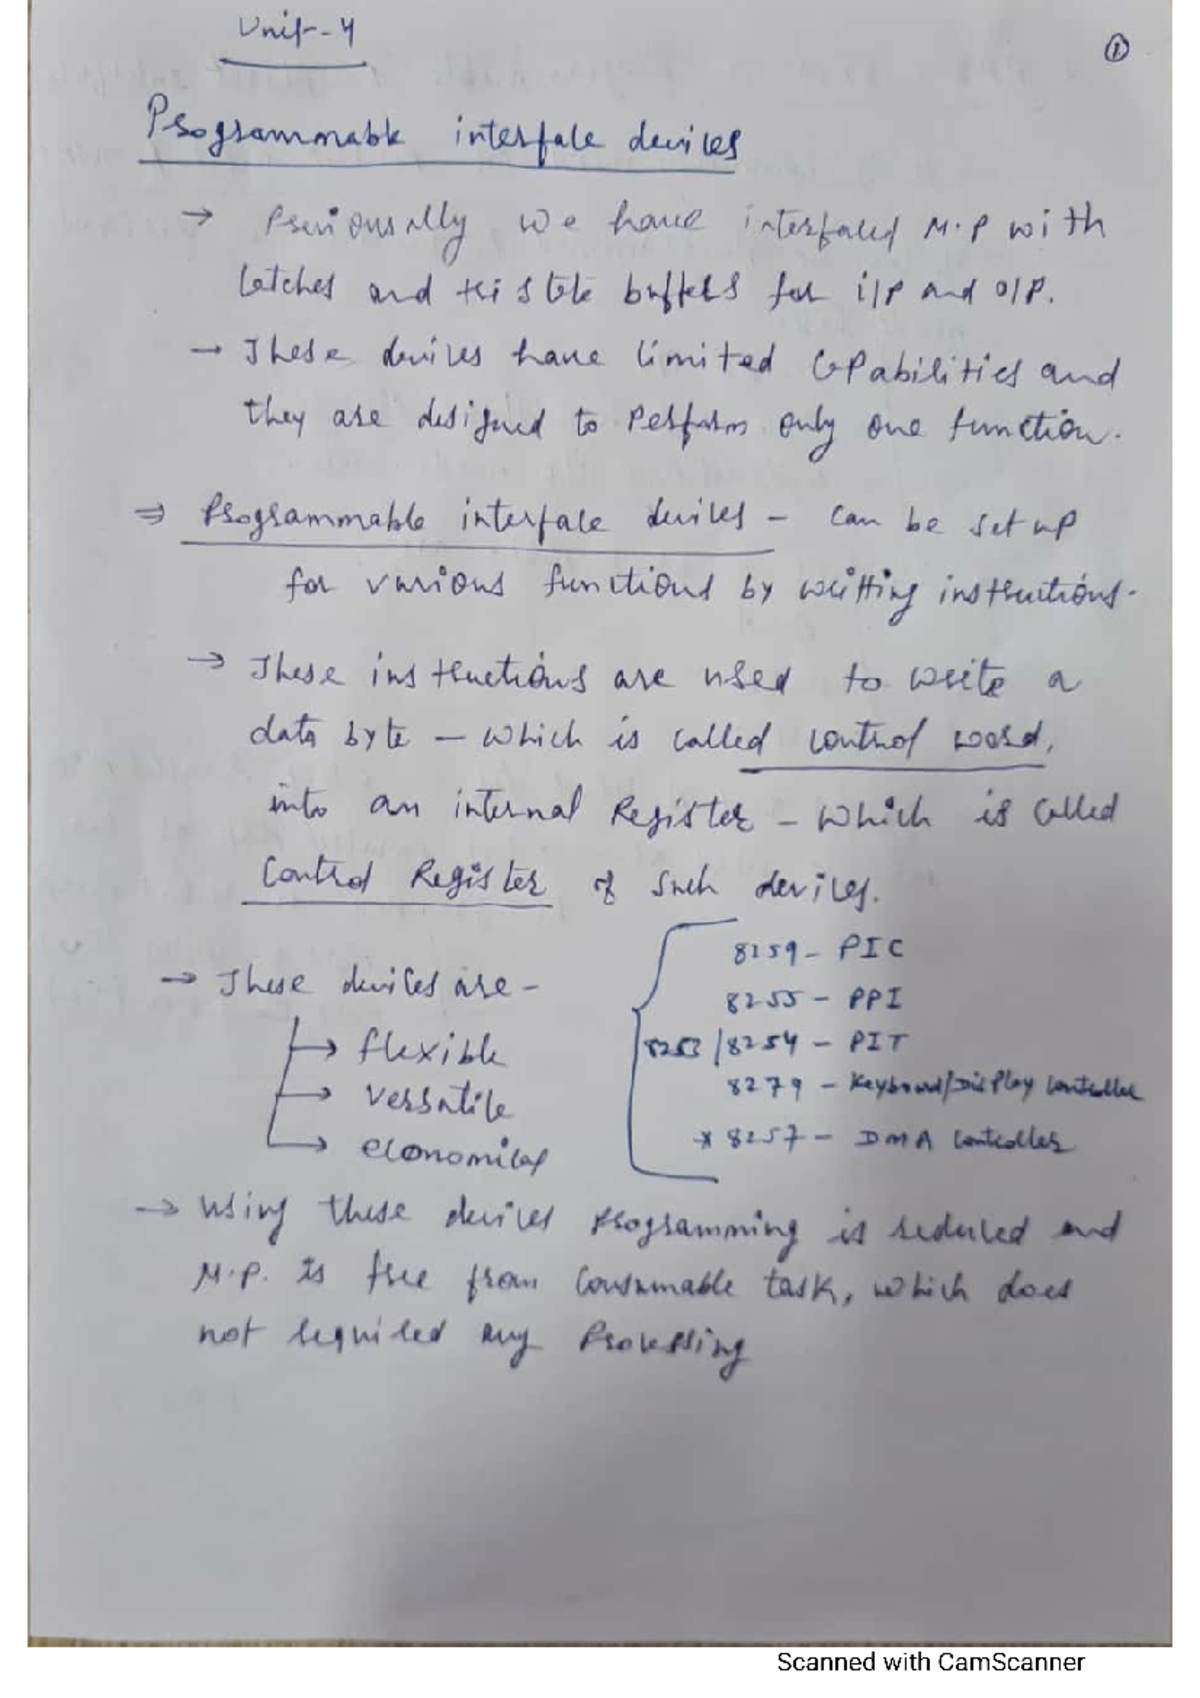 Unit-4
①
Programmable interface devices
→ Previousally we have interfaced M.P with
latches and tristate buffers for i/p and o/p.
→ These devices have limited Capabilities and
they are designed to Perform only one function.
⇒ Programmable interface devices - can be set up
for various functions by writting instructions.
→ These instructions are used to write a
data byte - which is called control word,
into an internal Register - which is called
Control Register of such devices.
8259 - PIC
→ These devices are -
8255 - PPI
→ flexible
8253/8254 - PIT
→ versatile
8279 - Keyboard/Display Controller
→ economical
* 8257 - DMA Controller
→ using these devices programming is reduced and
M.P. is free from Consumable task, which does
not required any Processing
Scanned with CamScanner